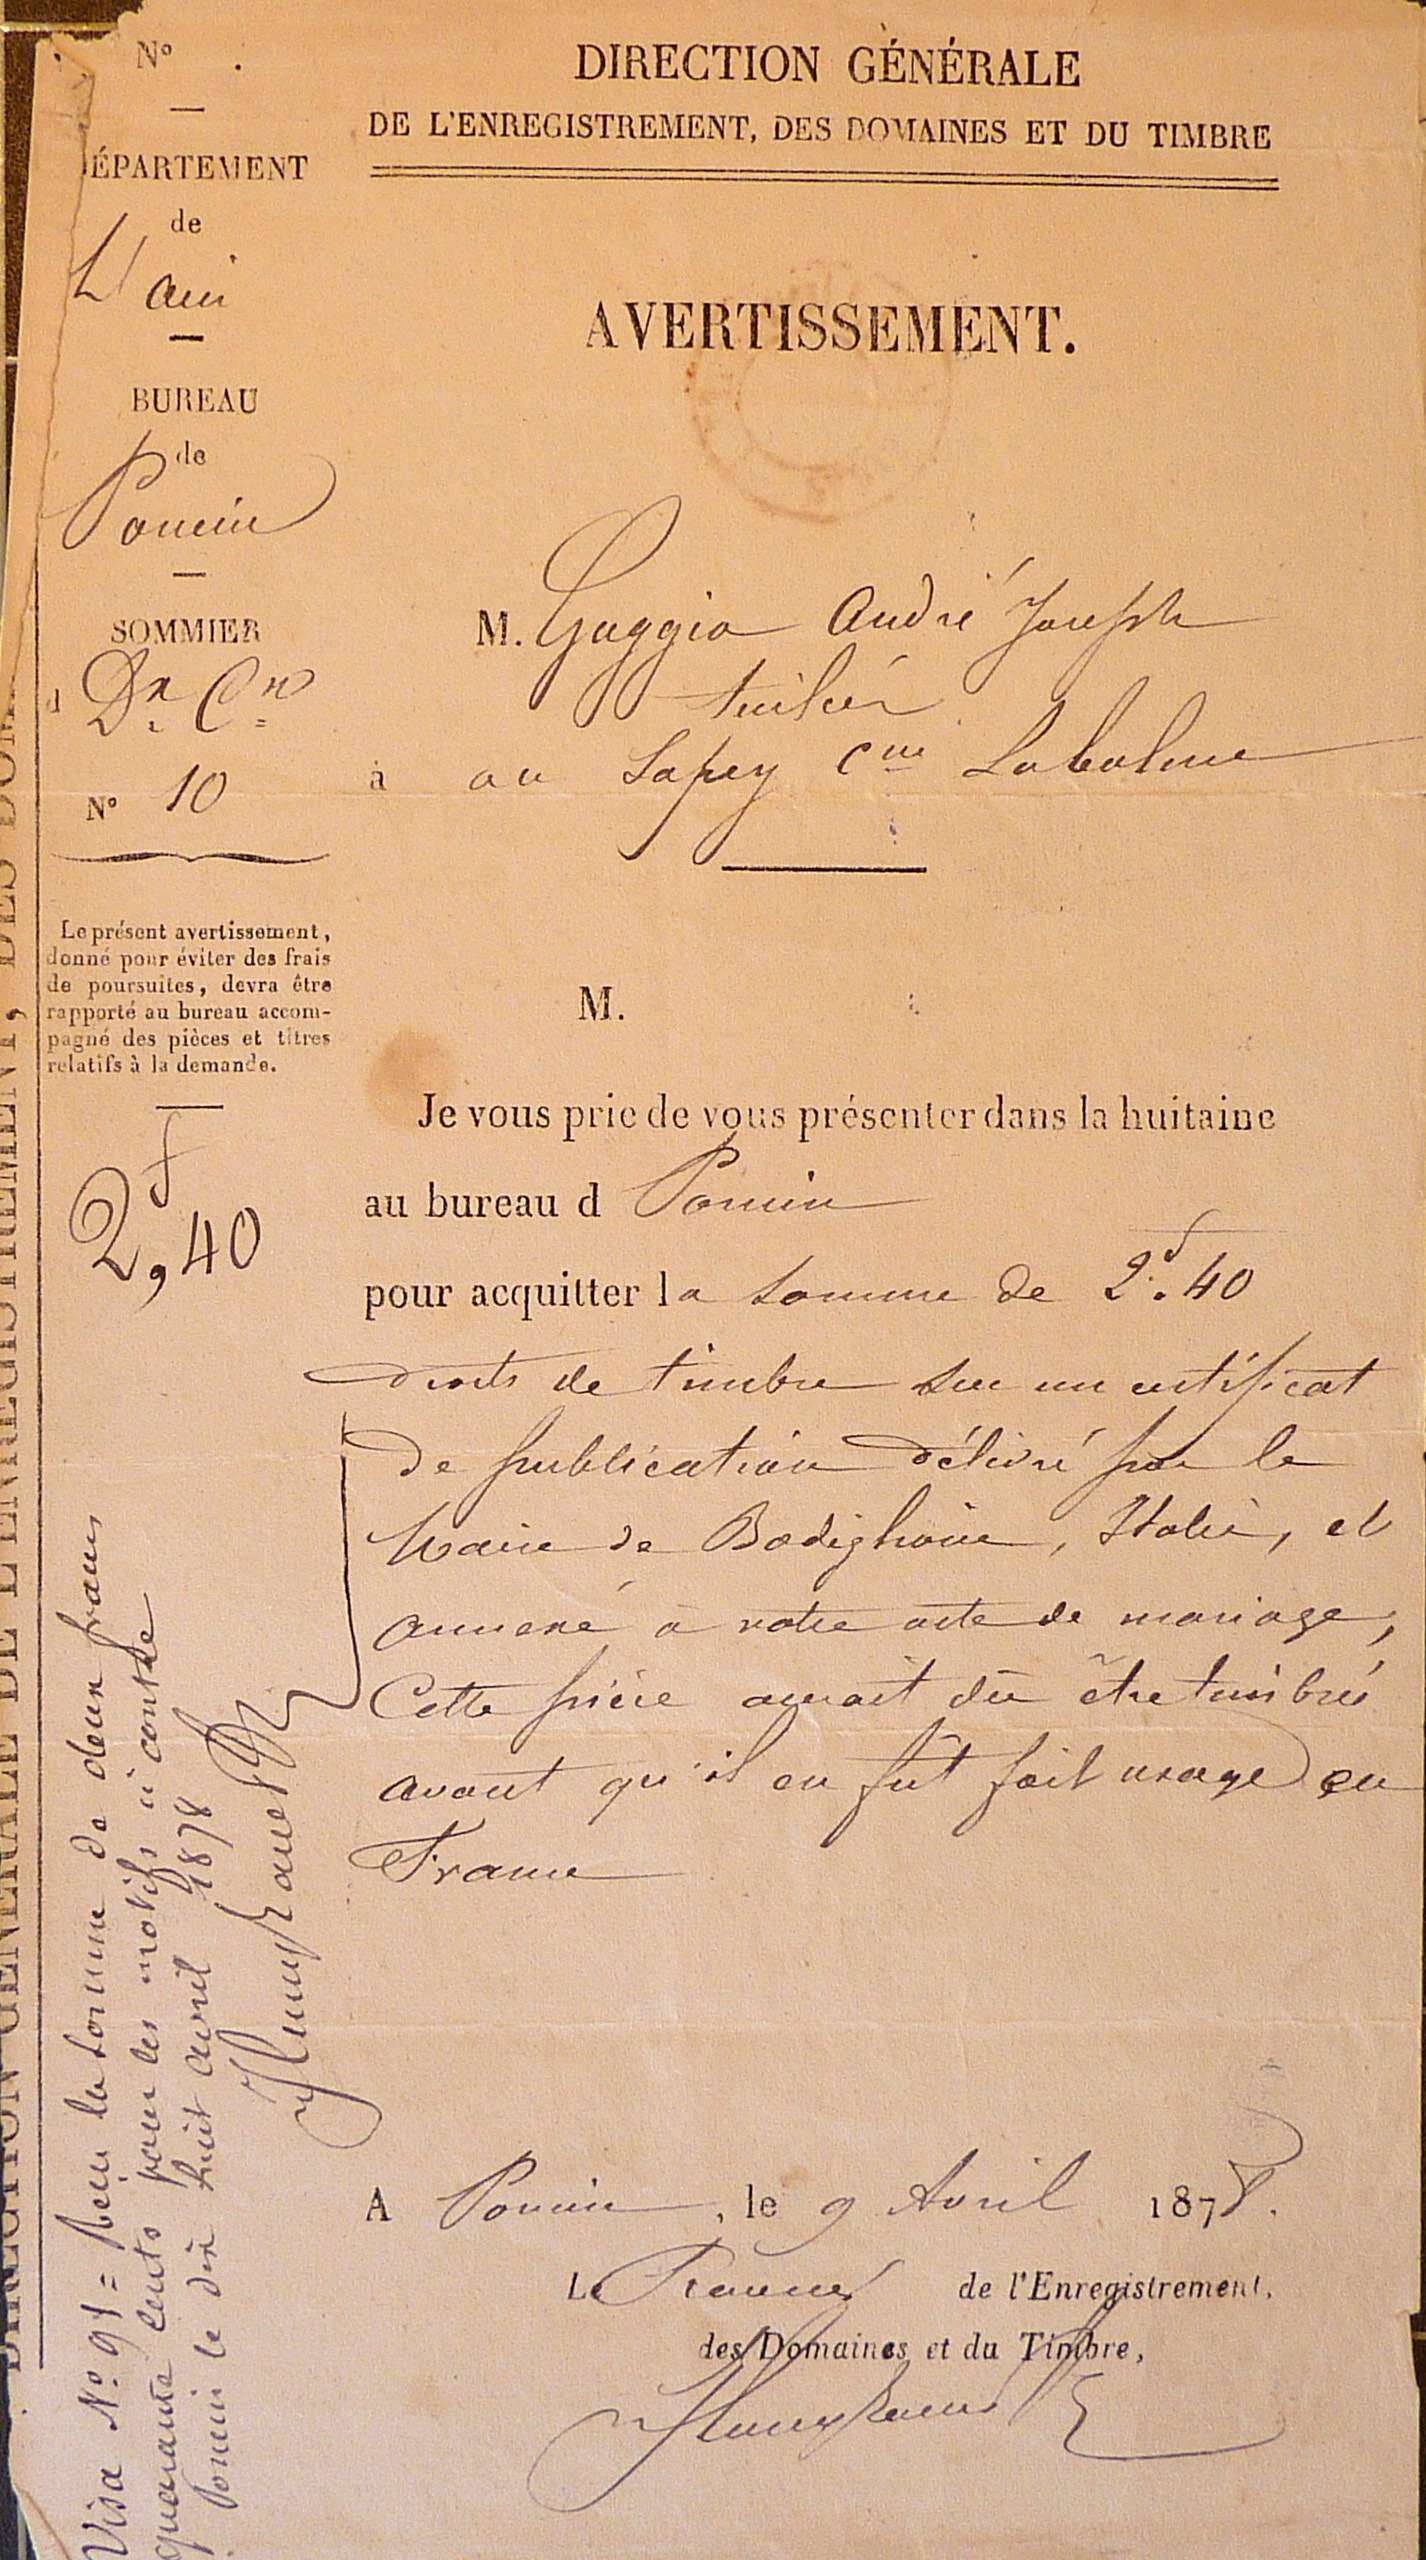 N°
DÉPARTEMENT
de
L'ain
BUREAU
de
Poncin
SOMMIER
d Dn Cn
N° 10
Le présent avertissement,
donné pour éviter des frais
de poursuites, devra être
rapporté au bureau accom-
pagné des pièces et titres
relatifs à la demande.
2,f 40
DIRECTION GÉNÉRALE
DE L'ENREGISTREMENT, DES DOMAINES ET DU TIMBRE
AVERTISSEMENT.
M. Gaggio André Joseph
tuilier
à au Sapey Cne Labalme
M.
Je vous prie de vous présenter dans la huitaine
au bureau d Poncin
pour acquitter la somme de 2f.40
droits de timbre sur un certificat
de publication délivré par le
Maire de , Italie, et
annexé à votre acte de mariage,
Cette pièce aurait dû être timbrée
avant qu'il en fût fait usage en
France
A Poncin, le 9 Avril 1878.
Le Receveur de l'Enregistrement,
des Domaines et du Timbre,
Visa N° 91 = Reçu la somme de deux francs
quarante cents pour les motifs ci contre
Poncin le dix huit avril 1878
DIRECTION GÉNÉRALE DE L'ENREGISTREMENT, DES DOM